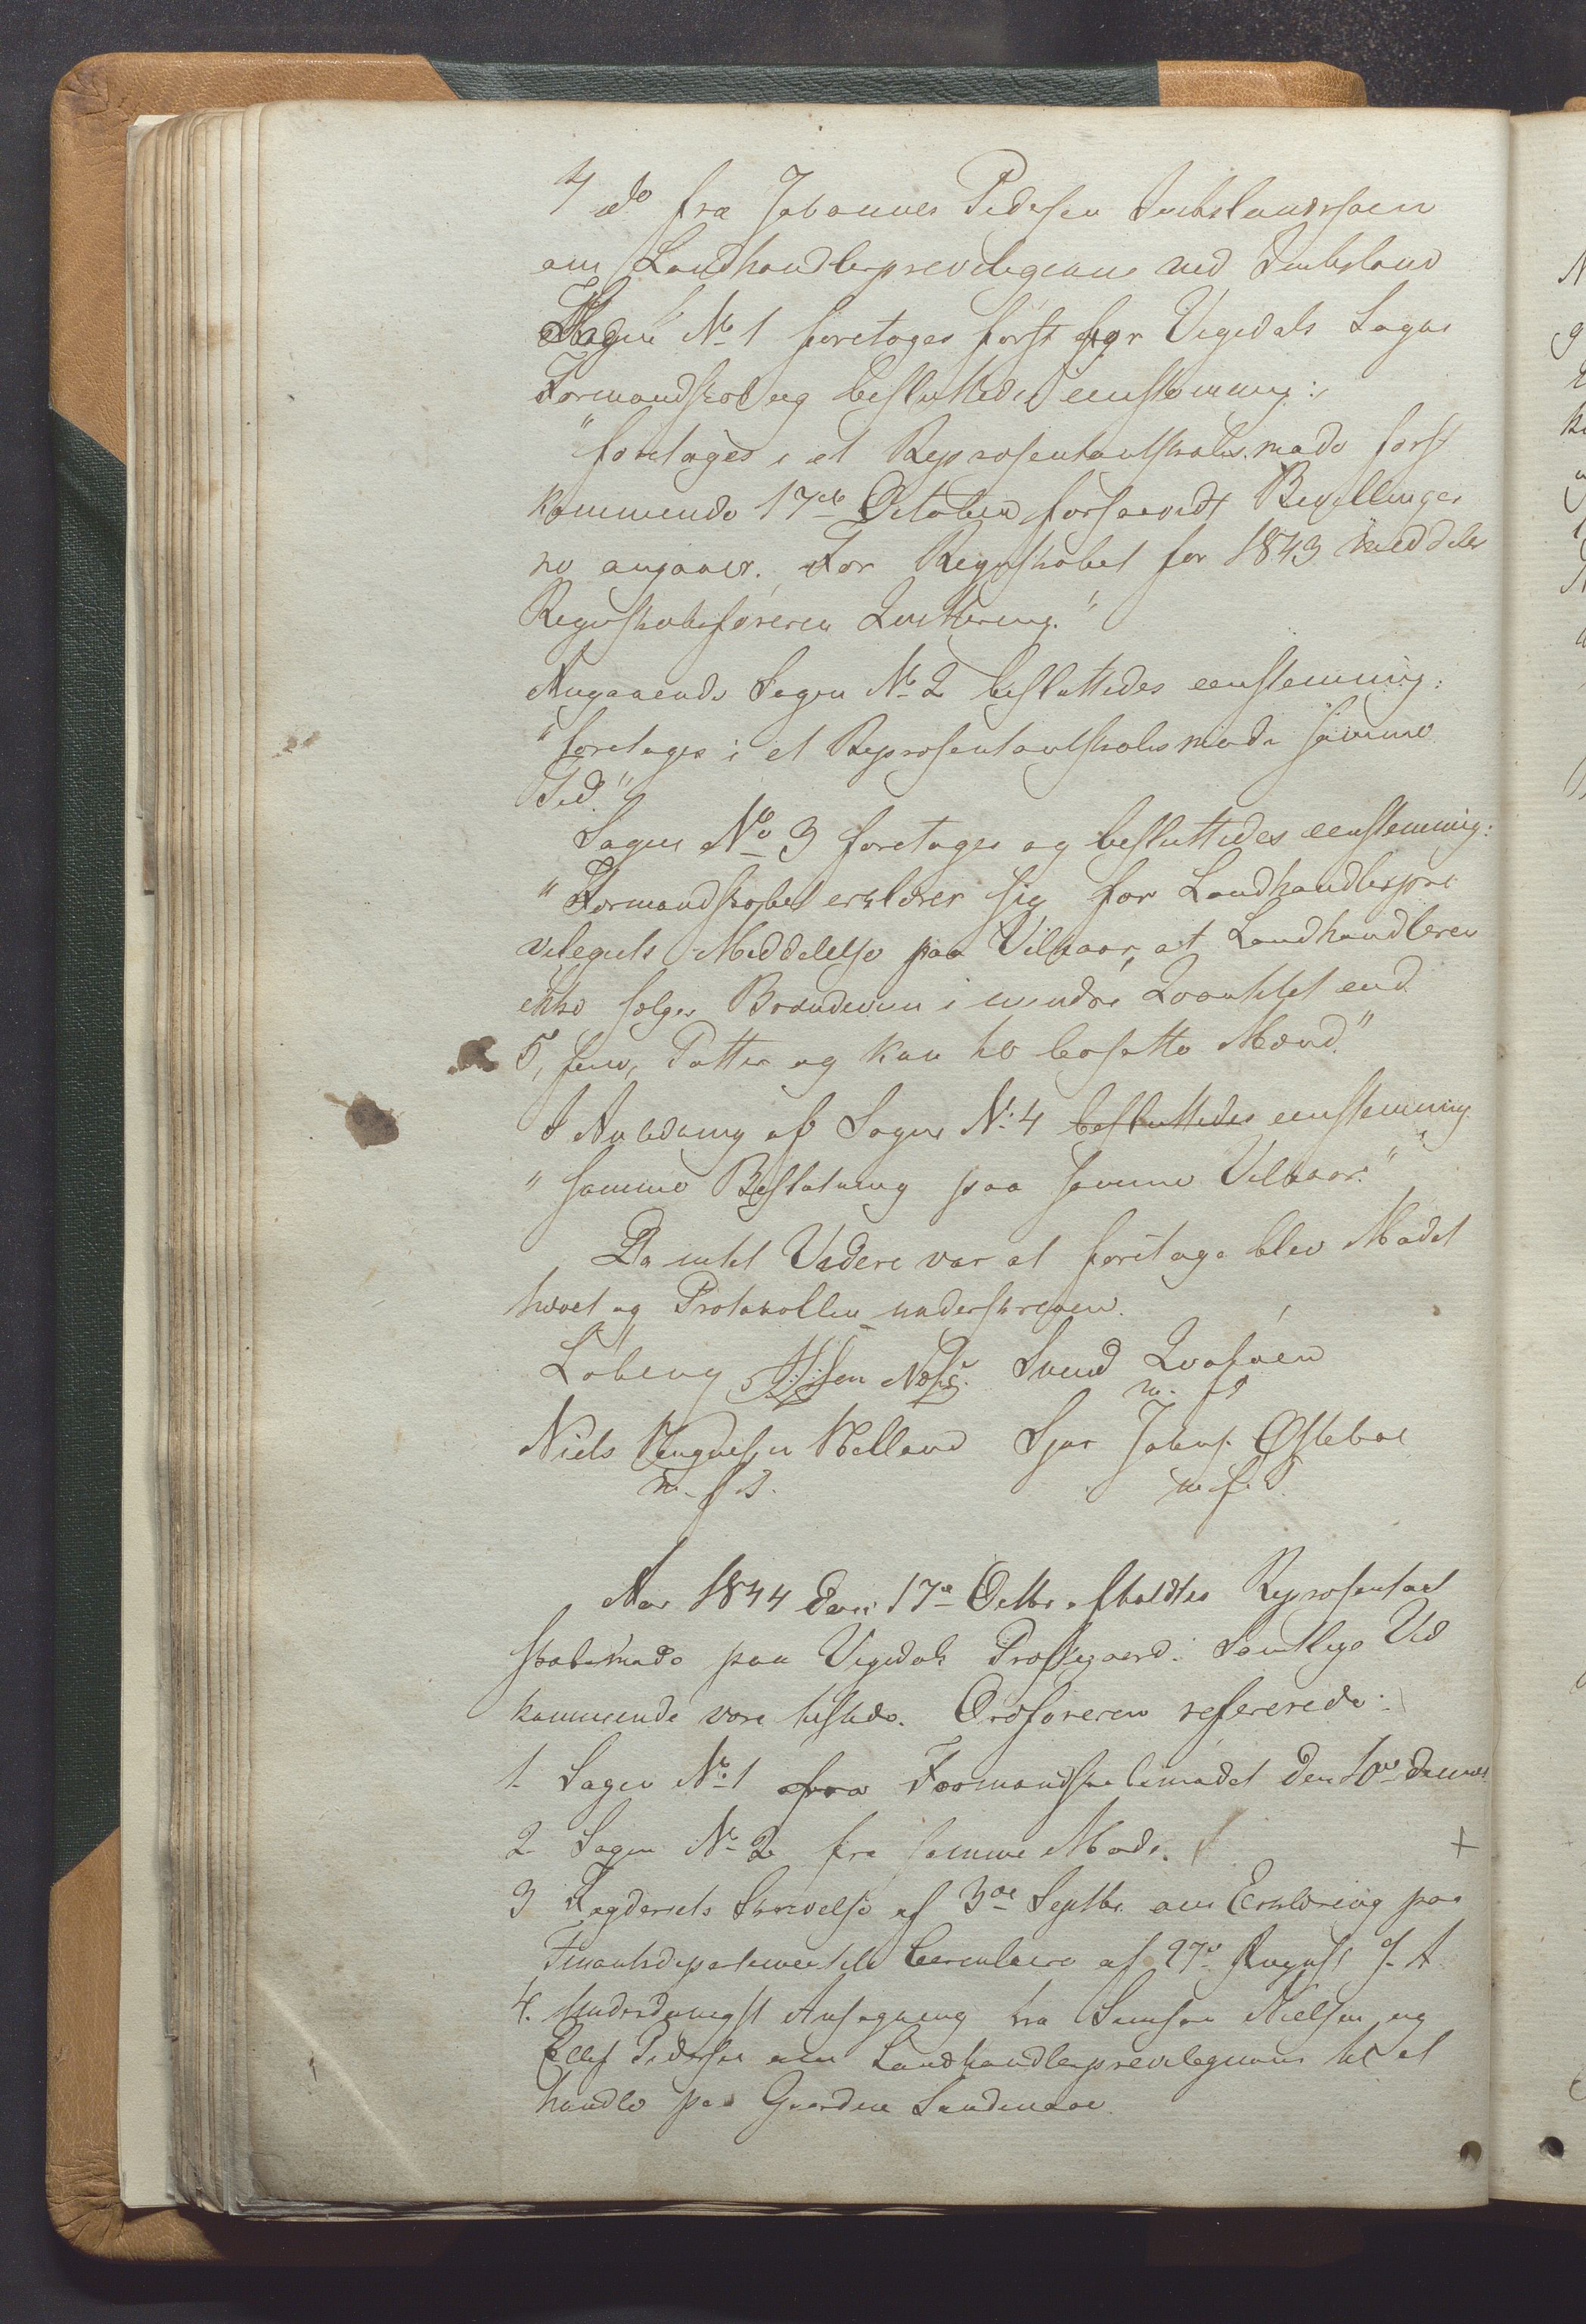 4 do fra Johannes Pedersen Imbslandsjøen
om Landhandlerprevilegium ved Imbsland
Sagen No 1 foretoges først for Vigedals Sogns
Formandskab og besluttedes eenstemmig:
"foretages i et Repræsentantskabsmøde først
kommende 17de October forsaavidt Bevillinger
ne angaaer. For Regnskabet for 1843 meddeles
Regnskabsføreren Qvittering."
Angaaende Sagen No 2 besluttedes eenstemmig:
"foretages i et Repræsentantskabsmøde samme
Tid."
Sagen No 3 foretoges og besluttedes eenstemmig:
"Formandskabet erklærer sig for Landhandlerpre
vilegiets Meddelelse paa Vilkaar, at Landhandleren
ikke sælger Brændeviin i mindre Qvantitet end
5, fem, Potter og kun til bosatte Mænd."
I Anledning af Sagen No 4 besluttedes eenstemmig
"samme Beslutning paa samme Vilkaar."
Da intet Videre var at foretage blev Mødet
hævet og Protokollen underskreven.
Svend
m. f. P
Niels Helland Jakobs. Østebøe
m. f. P. m. f. P.
Aar 1844 den 17de Octbr. afholdtes Repræsentant
skabsmøde paa Vigedals Præstegaard. Samtlige Ved
kommende vare tilstede. Ordføreren refererede:
1. Sagen No 1 fra Formandskabsmødet den 10de dennes
2 Sagen No 2 fra samme Møde. +
3 Fogderiets Skrivelse af 3die Septbr. om Erklæring paa
Finantsdepartementets Circulaire af 27de August d. A.
4. Underdanigst Ansøgning fra Samson Nielsen og
Ellef Pedersen om Landhandlerprevilegium til at
handle paa Gaarden